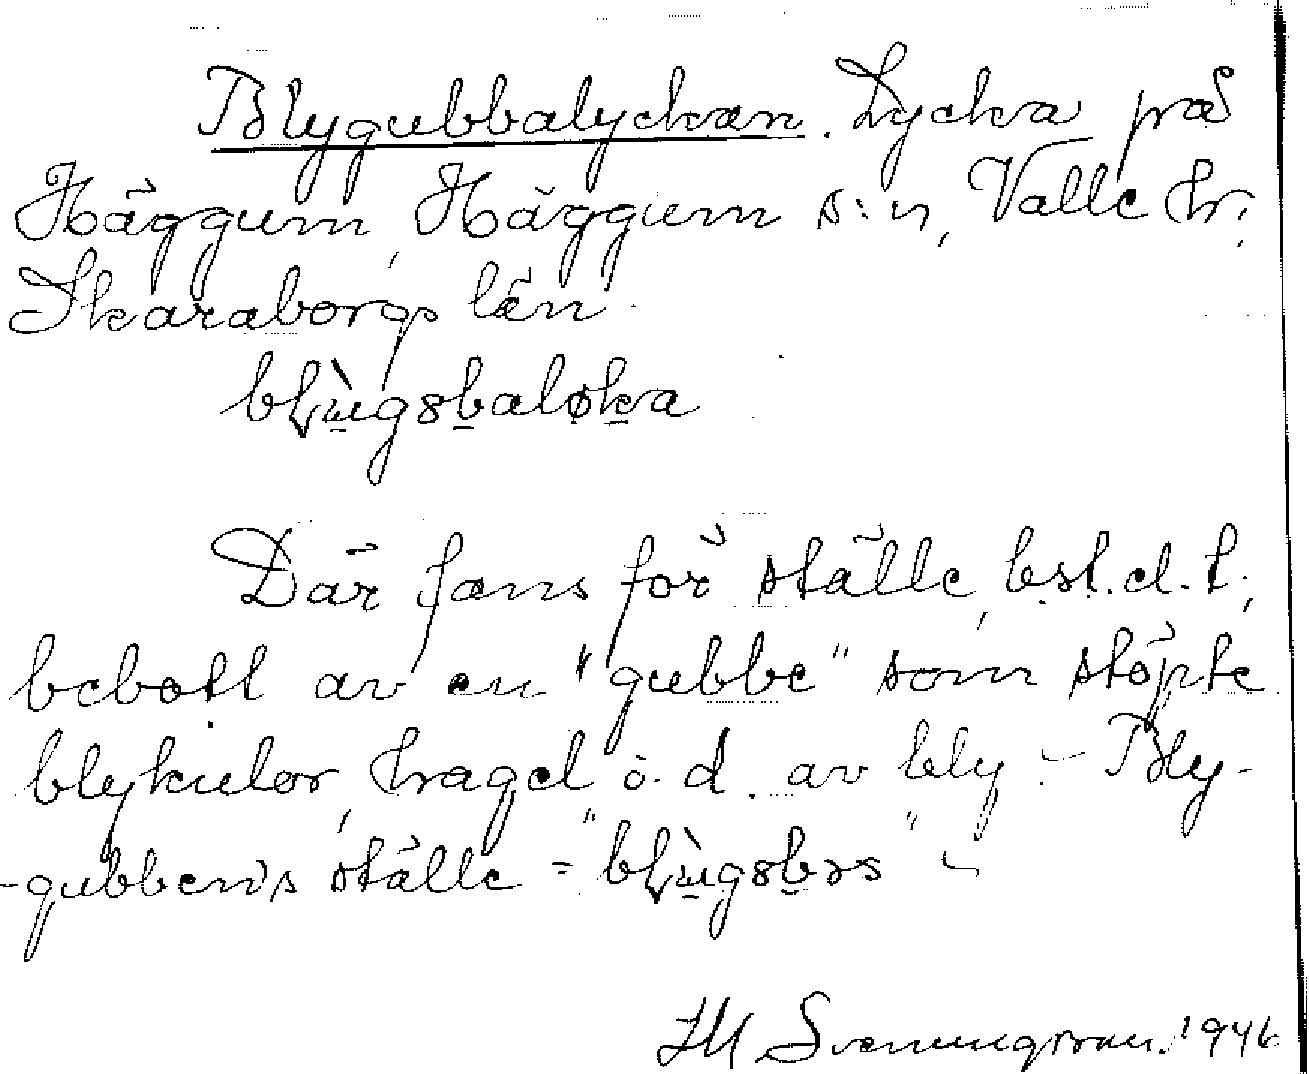 Blygubbalyckan. Lycka på
Häggum, Häggum s:n, Valle hr,
Skaraborgs län.
Där fans för ställe, bst. d. t.,
bebott av en "gubbe" som stöpte
blykulor, hagel o. d. av bly. - Bly-
-gubbens ställe =
J M Svenungsson. 1946